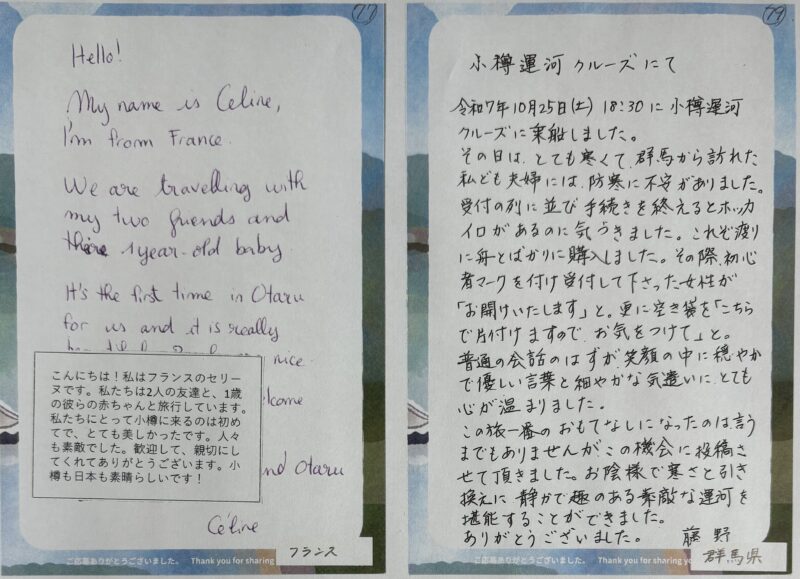 77
Hello!
My name is Céline,
I'm from France.
We are travelling with
my two friends and
there 1 year-old baby
It's the first time in Otaru
for us and it is really
nice.
welcome
and Otaru
こんにちは！私はフランスのセリー
ヌです。私たちは2人の友達と、1歳
の彼らの赤ちゃんと旅行しています。
私たちにとって小樽に来るのは初め
てで、とても美しかったです。人々
も素敵でした。歓迎して、親切にし
てくれてありがとうございます。小
樽も日本も素晴らしいです！
Céline
ご応募ありがとうございました。 Thank you for sharing
フランス
79
小樽運河クルーズにて
令和7年10月25日(土) 18:30に小樽運河
クルーズに乗船しました。
その日は、とても寒くて、群馬から訪れた
私ども夫婦には、防寒に不安がありました。
受付の列に並び手続きを終えるとホッカ
イロがあるのに気づきました。これぞ渡り
に舟とばかりに購入しました。その際、初心
者マークを付け受付して下さった女性が
「お開けいたします」と。更に空き袋を「こちら
で片付けますので、お気をつけて」と。
普通の会話のはずが、笑顔の中に穏やか
で優しい言葉と細やかな気遣いに、とても
心が温まりました。
この旅一番のおもてなしになったのは言う
までもありませんがこの機会に投稿さ
せて頂きました。お陰様で寒さと引き
換えに静かで趣のある素敵な運河を
堪能することができました。
ありがとうございました。 藤野
ご応募ありがとうございました。 Thank you for sharing
群馬県